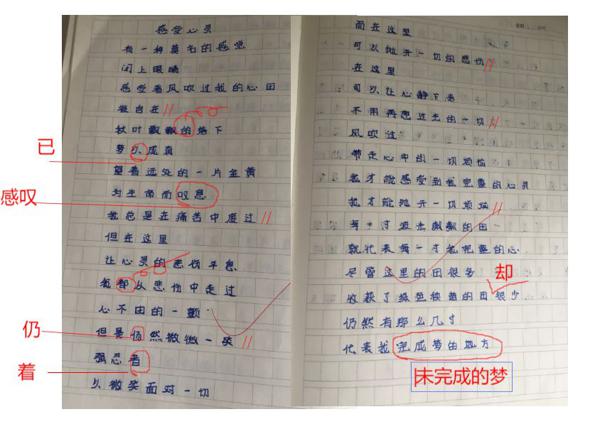 感受心灵
有一种莫名的感觉
闭上眼睛
感受着风吹过我的心田
很自在
秋叶飘飘的落下
已
梦以成真
望着远处的一片金黄
感叹
对生命而叹息
我总是在痛苦中度过
但在这里
让心灵的悲伤平息
我却从悲伤中走过
心不由的一颤
仍
但是仍然微微一笑
强忍着
着
以微笑面对一切
而在这里
可以抛开一切的悲伤
在这里
可以让心静下来
不用再想过去的一切
风吹过
带走心中的一切烦恼
我才能感受到我完整的心灵
我才能抛开一切烦恼
每一寸
就代表每一寸我完整的心
尽管这里的田很多
却
收获了绿色植着的田很少
仍然有那么几寸
代表我完成梦的地方
未完成的梦